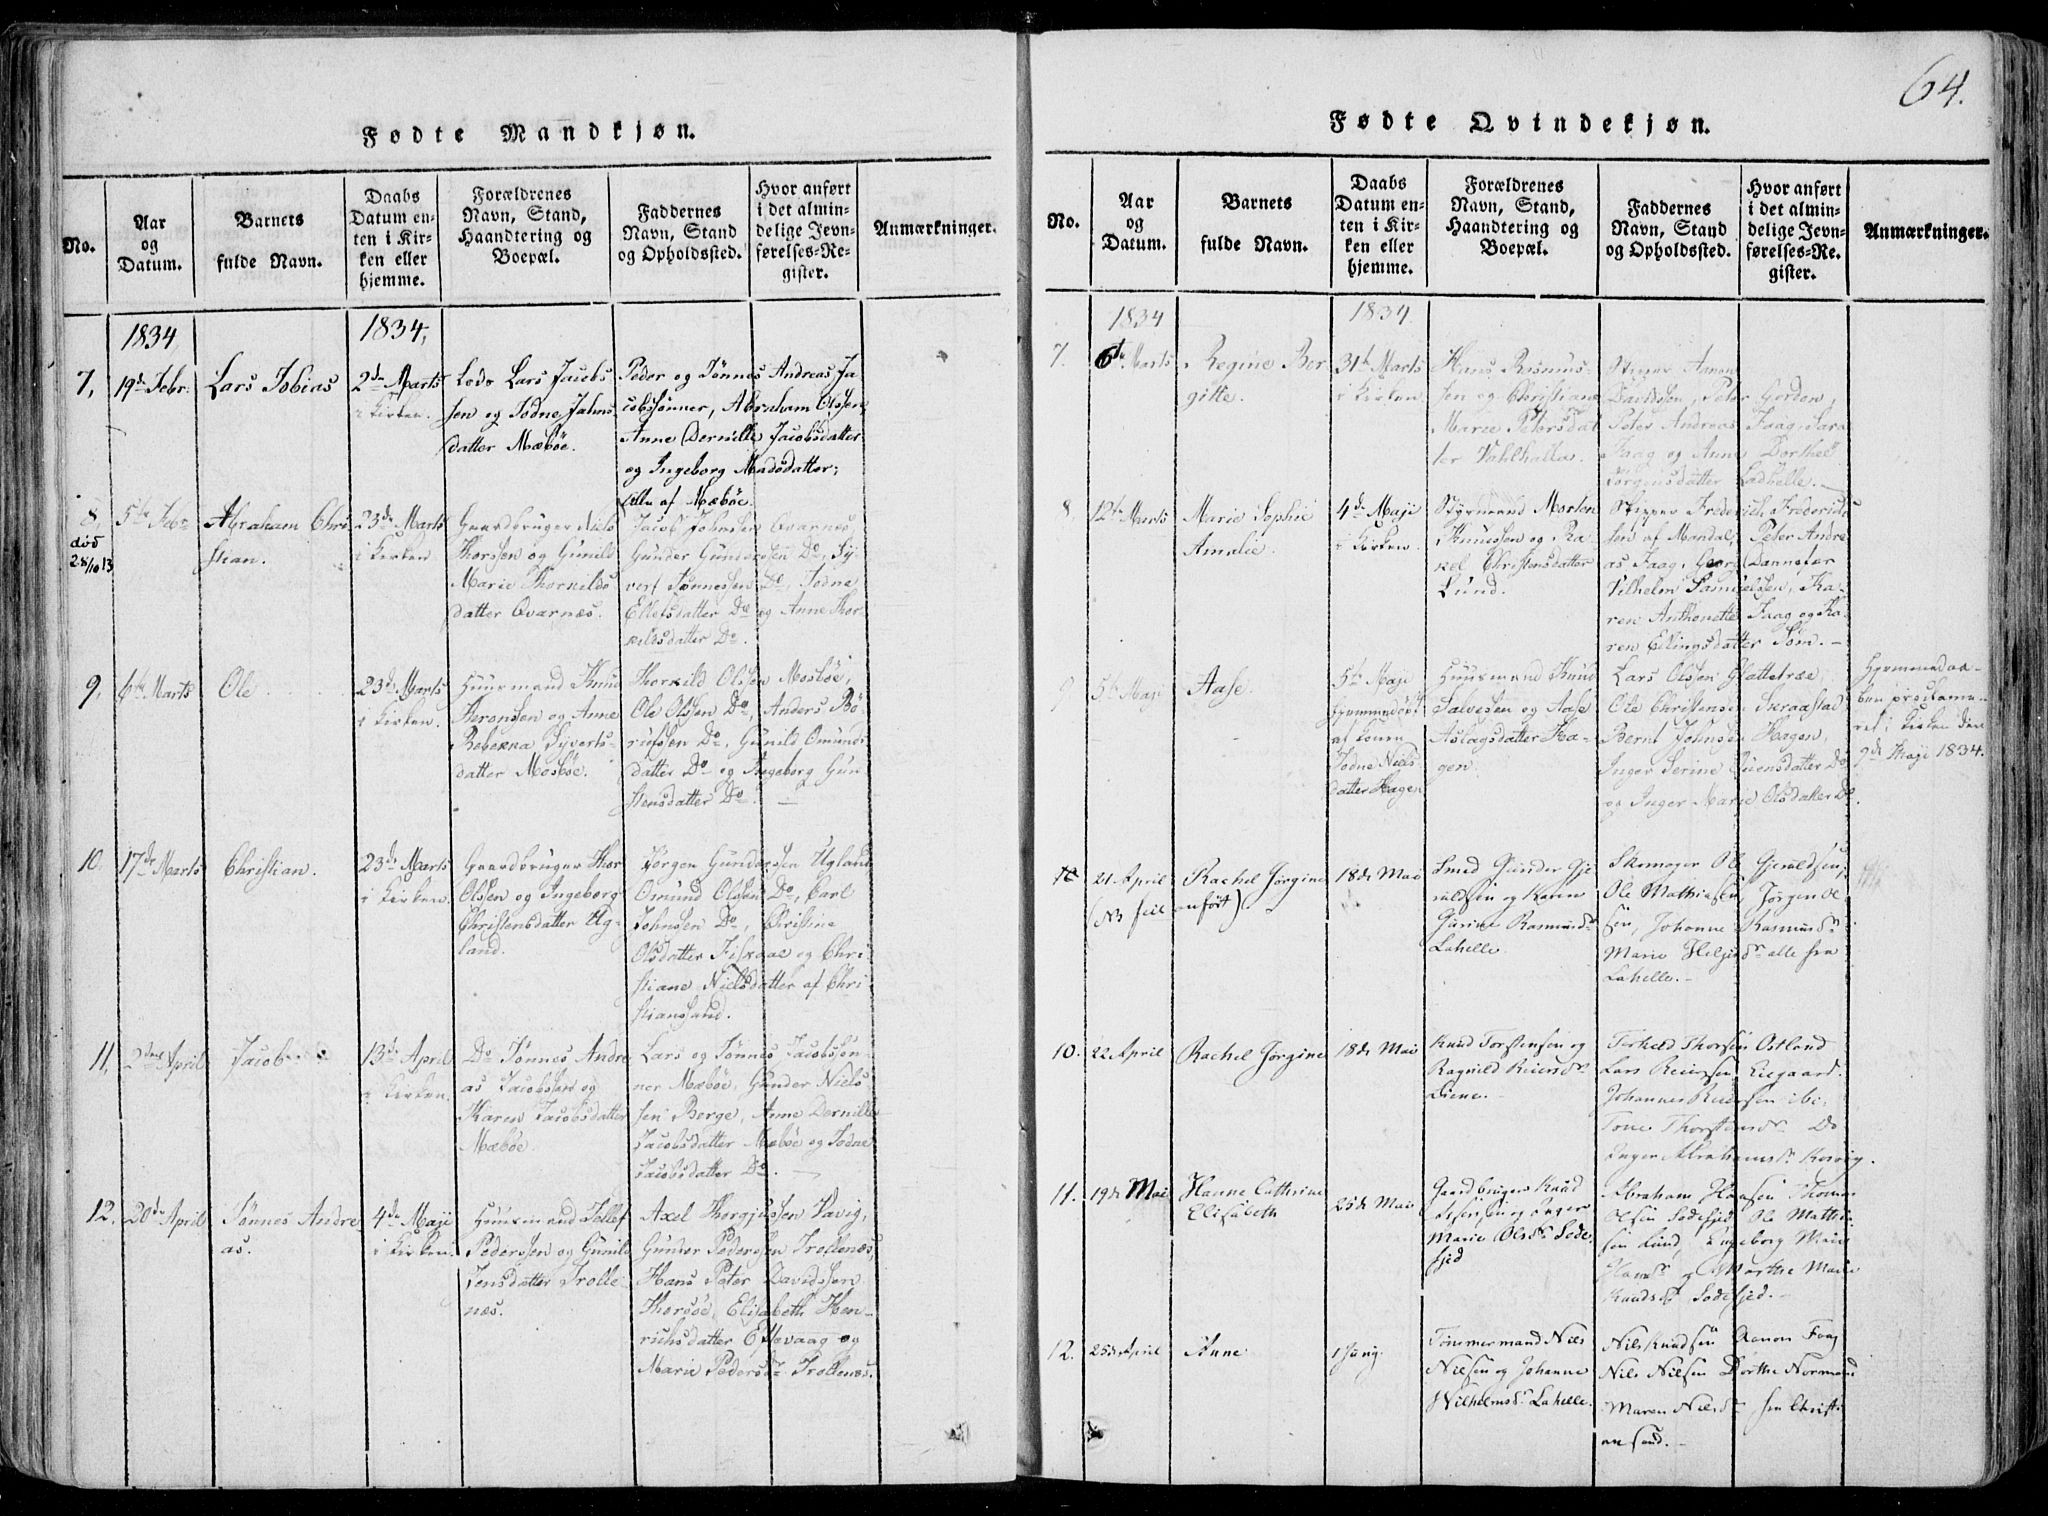 64.
Fødte Mandkjøn.
No.
Aar og Datum.
Barnets fulde Navn.
Daabs Datum enten i Kirken eller hjemme.
Forældrenes Navn, Stand, Haandtering og Boepæl.
Faddernes Navn, Stand og Opholdssted.
Hvor anført i det almindelige Jevnførelses-Register.
Anmærkninger.
1834
1834,
7,
19de Febr.
Lars Tobias
2de Marts
i Kirken.
Lods Lars Jacobs
sen og Todne Jahns
datter Mæbøe.
Peder og Tønnes Andreas Ja
cobssønner, Abraham Olssen
Anne Dernille Jacobsdatter
og Ingeborg Madsdatter;
alle af Mæbøe.
8,
død
5te Febr
Abraham Chri
stian.
23de Marts
i Kirken
Gaardbruger Niels
Thorssen og Gunild
Marie Thorkilds
datter Qvarnes.
Jacob Johnsen Qvarnes,
Gunder Gunderssen Do, Sy
vert Tønnessen Do, Todne
Ellefsdatter Do og Anne Thor
kildsdatter Do.
9,
6te Marts
Ole
23de Marts
i Kirken.
Huusmand Knud
Aronssen og Anne
Rebekka Syverts
datter Mosbøe.
Thorkild Olssen Mosbøe,
Ole Olssen Do, Anders Bø
rufssen Do, Gunild Omunds
datter Do og Ingeborg Gun
stensdatter Do.
10.
17de Marts
Christian.
23de Marts
i Kirken.
Gaardbruger Thor
Olssen og Ingeborg
Christensdatter Ug-
land.
Jørgen Gunderssen Ugland
Omund Olssen Do, Carl
Johnssen Do, Christine
Olsdatter Fiskaae og Chri-
stiane Nielsdatter af Chri
stianssand.
11,
2den April
Jacob
13de April
i Kirken.
Do Tønnes Andre
as Jacobssen og
Karen Jacobsdatter
Mæbøe
Lars og Tønnes Jacobssøn-
ner Mæbøe, Gunder Niels
sen Berge, Anne Dernille
Jacobsdatter Mæbøe og Todne
Jacobsdatter Do.
12,
20de April
Tønnes Andre
as.
4de Maji
i Kirken.
Huusmand Tellef
Pederssen og Gunild
Jensdatter Trolle-
næs.
Axel Thorgjussen Vavig,
Gunder Pederssen Trollenæs,
Hans Peter Davidssen
Thorsøe, Elisabeth Hen-
richsdatter Eftevaag og
Marie Pedersdr Trollenæs.
Fødte Qvindekjøn.
No.
Aar og Datum.
Barnets fulde Navn.
Daabs Datum enten i Kirken eller hjemme.
Forældrenes Navn, Stand, Haandtering og Boepæl.
Faddernes Navn, Stand og Opholdssted.
Hvor anført i det almindelige Jevnførelses-Register.
Anmærkninger.
1834
1834.
7.
6te Marts
Regine Ber
gitte.
31te Marts
i Kirken
Hans Rasmus-
sen og Christiane
Marie Petersdat
ter Vahlhalla.
Skipper Aanon
Davidssen, Peter Gordon,
Peter Andreas Faag, Sara
Faag og Anne Dorthea
Jørgensdatter Ladhelle.
8,
12te Marts
Marie Sophie
Amalie.
4de Maji
i Kirken.
Styrmand Morten
Knudssen og Ra
kel Christensdatter
Lund.
Skipper Frederich Friderichs
sen af Mandal, Peter Andre
as Faag, Georg Dannefær
Vilhelm Samuelssen, Ka-
ren Anthonette Faag og Ka-
ren Ellingsdatter Søm.
9
5te Maji
Aase
5te Maji
hjemmedøbt
af Konen
Todne Niels
datter Hagen
Huusmand Knud
Salvesen og Aase
Aslagsdatter Ha-
gen.
Lars Olssen Glattetræe,
Ole Christensen Skraastad
Bernt Johnsen Hagen,
Inger Serine Evensdatter Do
og Inger Marie Olsdatter Do.
Hjemmedaa-
ben proclame-
ret i Kirken den
9de Maji 1834.
10
21 April
Rachel Jørgine
(NB feil anført)
18de Mai
Smed Gunder Gje
ruldsen og Karen
Gurine Rasmusdr
Lahelle.
Skomager Ole Gjeruldsen,
Ole Mathiesen, Jørgen Ol
sen, Johanne Rasmusdr
Marie Heljesdr alle fra
Lahelle.
10.
22 April
Rachel Jørgine
18de Mai
Knud Torstensen og
Ragnild Reiersdr
Diene.
Terkeld Thorsen Ostland
Lars Reiersen Eegaard.
Johannes Reiersen ibi.
Tone Thorstensdr Do
Inger Abrahamsdr Kosvig.
11.
19de Mai
Hanne Cathrine
Elisabeth
25de Mai
Gaardbruger Knud
Marie Olsdr Sode
fjed
Abraham Hansen Thomas
Olsen Sodefjed Ole Mathi
sen Lund, Ingeborg Marie
Hansdr og Marthe Marie
Knudsdr Sodefjed.
12.
25de April
Anne
1 Juny.
Tømmermand Niels
Nielsen og Johanne
Wilhelmsdr Lahelle.
Nils Knudsen Aanon Faag
Nils Nilsen Dorthe Normand
Maren Nilsdr fra Christi
ansand.